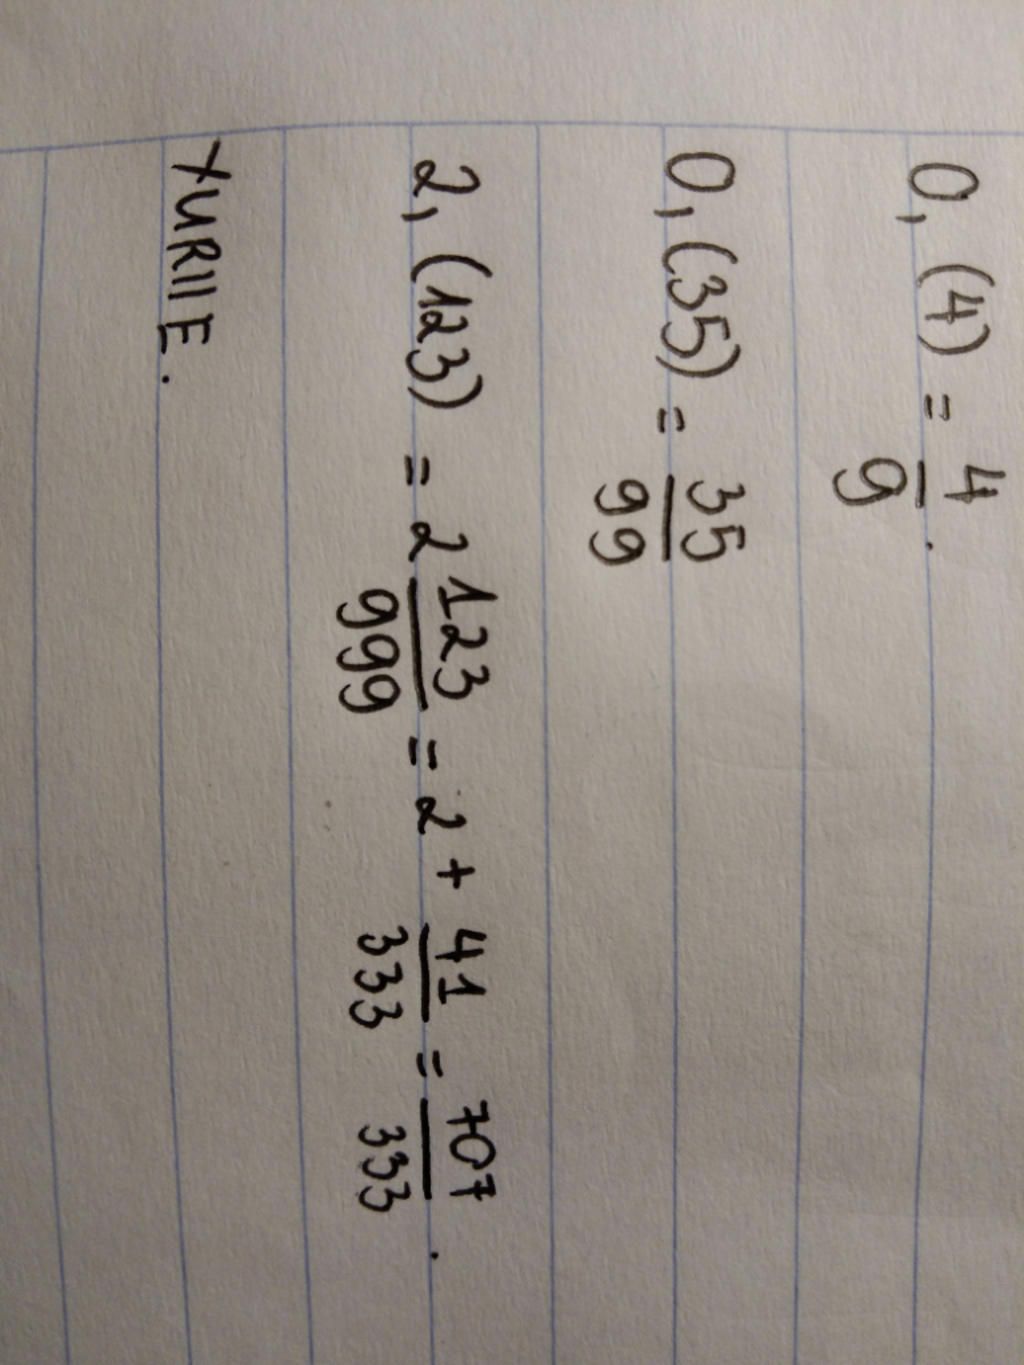 0,(4) = 4/9.
0,(35) = 35/99
2,(123) = 2 123/999 = 2 + 41/333 = 707/333.
YURII E.